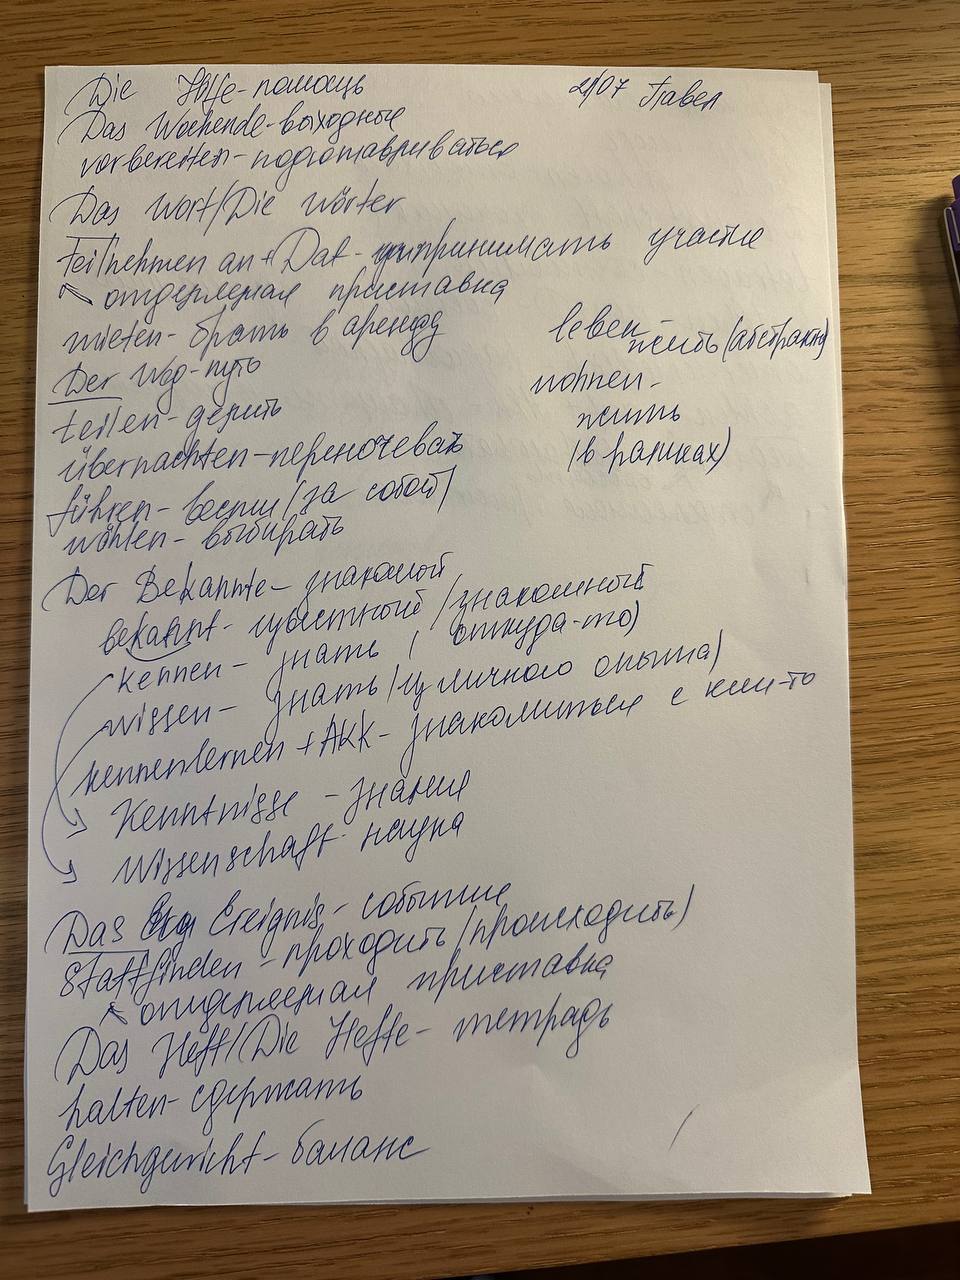 Die Hilfe - помощь 21/07 Павел
Das Wochende - выходные
vorbereiten - подготавливаться
Das Wort/Die Wörter
teil/nehmen an + Dat - принимать участие
отделяемая приставка
mieten - брать в аренду
Der Weg - путь
teilen - делить
übernachten - переночевать
führen - вести (за собой)
wählen - выбирать
leben -
жить (абстрактн)
wohnen -
жить
(в рамках)
Der Bekannte - знакомый
bekannt - известный / знакомый
kennen - знать ( откуда-то)
wissen - знать (из личного опыта)
kennenlernen + AKK - знакомиться с кем-то
Kenntnisse - знания
Wissenschaft - наука
Das Ereignis - событие
stattfinden - проходить (происходить)
отделяемая приставка
Das Heft/Die Hefte - тетрадь
halten - сдержать
Gleichgewicht - баланс